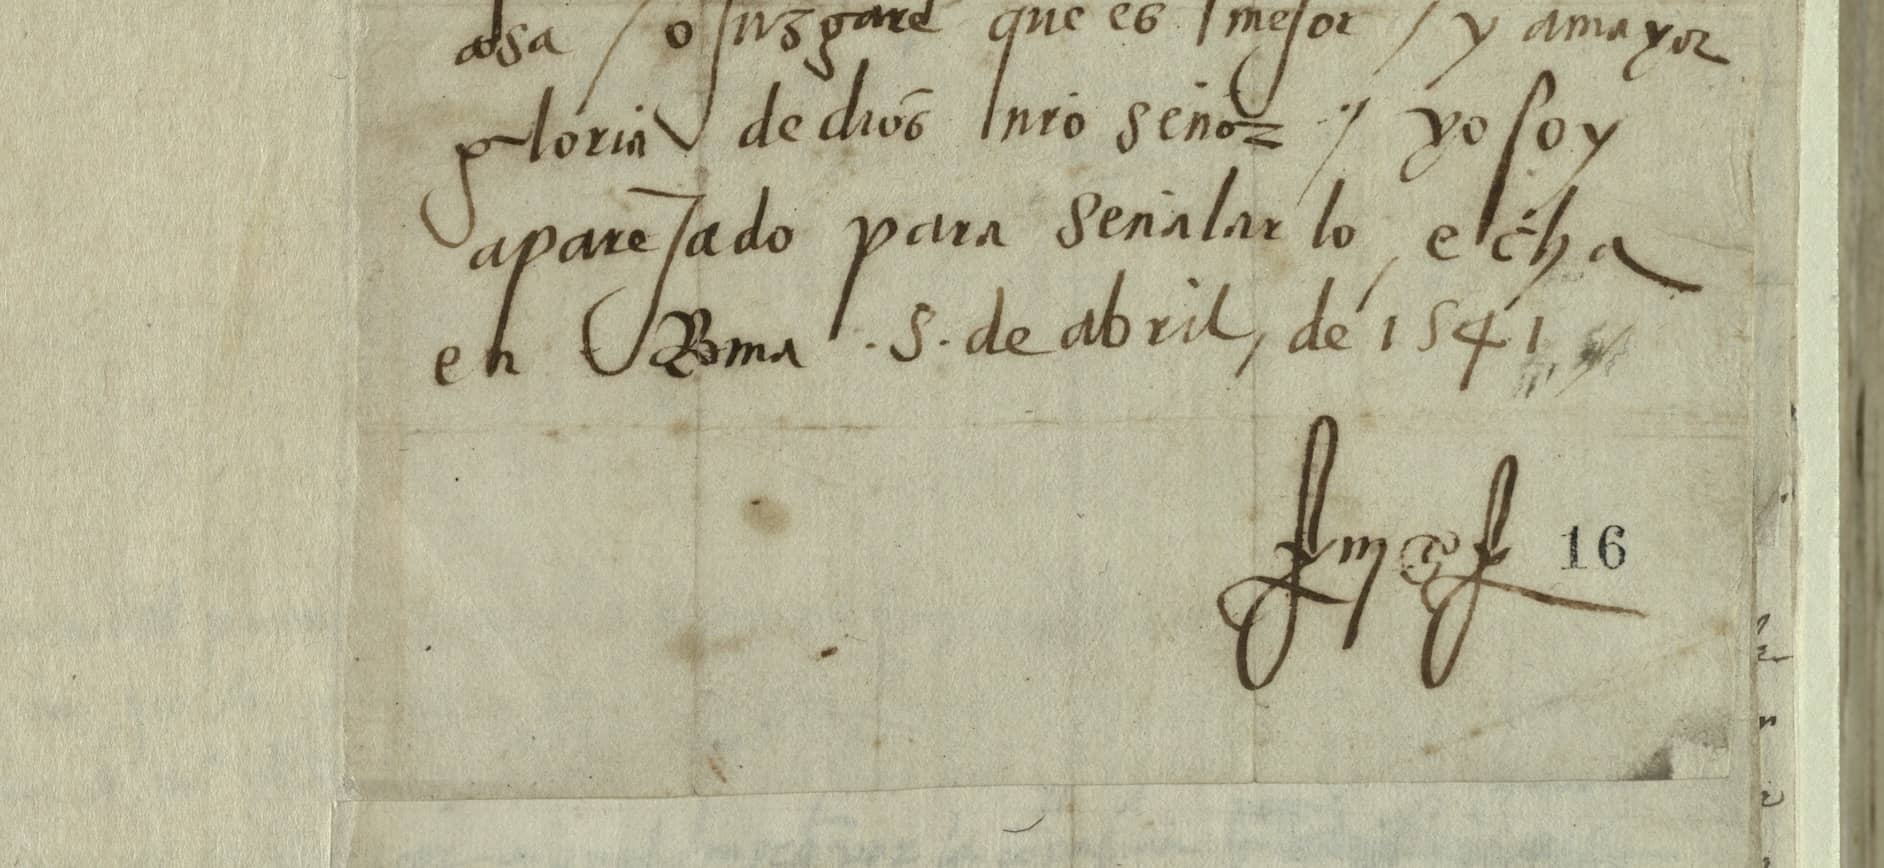 cosa / o juzgare que es mejor / y a mayor
gloria de dios nro señor / yo soy
aparejado para señalarlo, echa
en Roma .5. de abril, de 1541
16